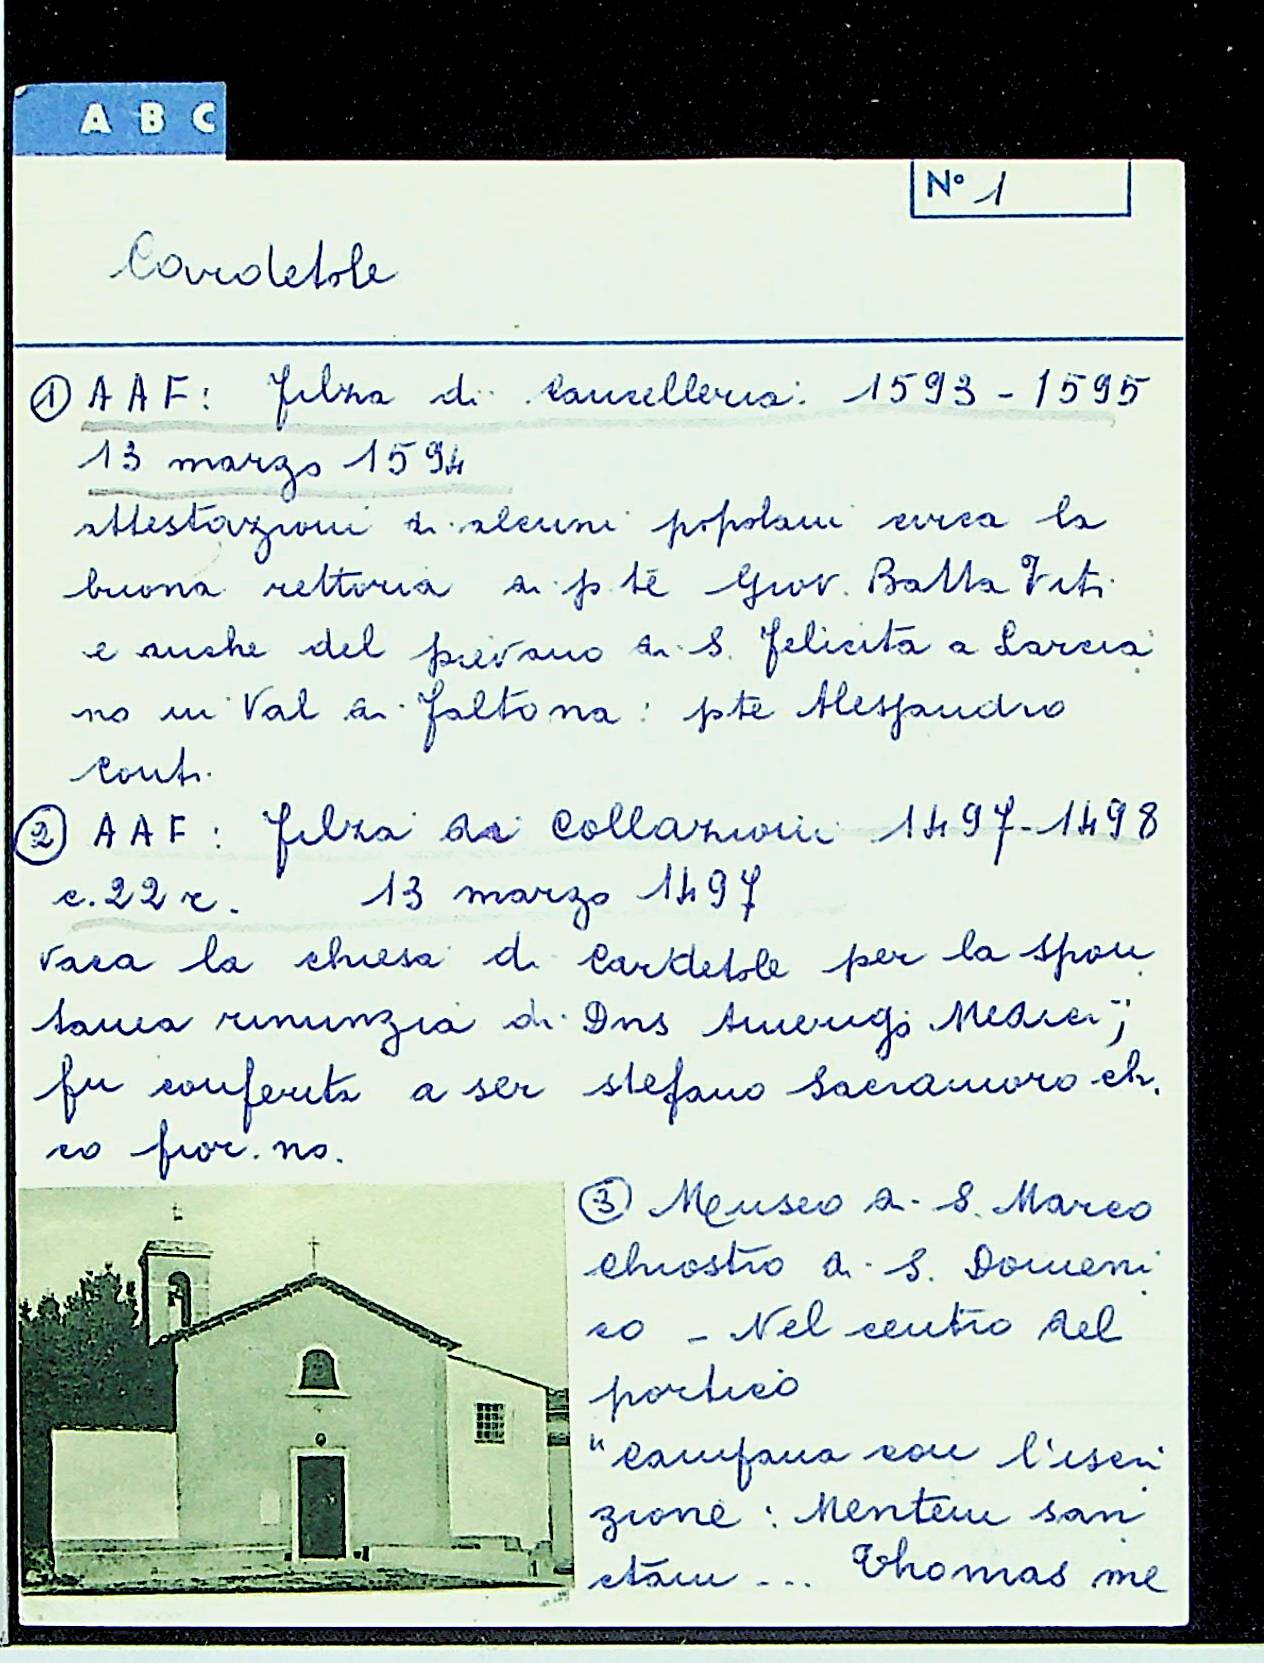 A B C
Nº 1
Cardetole
① AAF: Filza di Cancelleria: 1593-1595
13 marzo 1594
attestazioni di alcuni popolani circa la
buona rettoria di p.te Giov. Batta Viti
e anche del pievano di S. Felicita a Larcia
no in Val di Faltona: pte Alessandro
Conti.
② AAF: Filza di Collazioni 1497-1498
c.22r. 13 marzo 1497
vaca la chiesa di Cardetole per la spon
tanea rinunzia di Dns Amerigo Medici;
fu conferita a ser Stefano Sacramoro ch.
co fior.no.
③ Museo di S. Marco
Chiostro di S. Domeni
co - Nel centro del
portico
"Campana con l'iscri
zione: Mentem san
ctam ... Thomas me